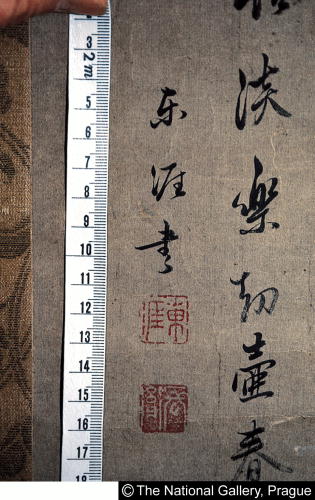 淡樂
壺春
东涯書
東涯
2m
3
5
6
7
8
9
10
11
12
13
14
15
16
17
18
© The National Gallery, Prague